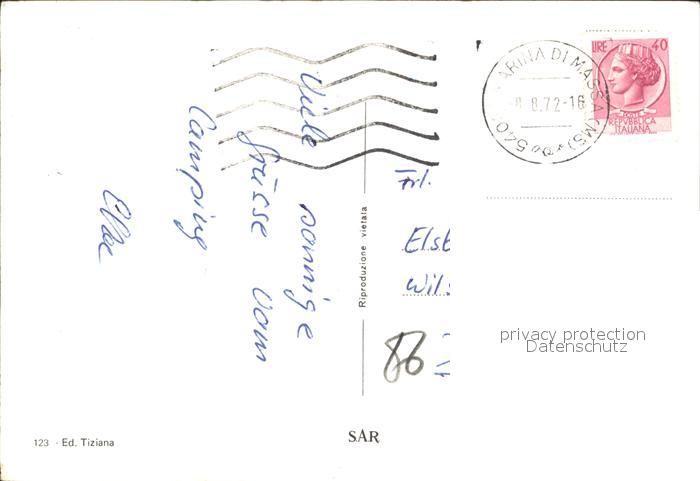 LIRE 40
POSTE
REPVBBLICA
ITALIANA
MARINA DI MASSA (MS)
8.8.72-16
540
Viele sonnige
Grüsse vom
Camping
Frl.
Elsb
Wil
86
Riproduzione vietata
privacy protection
Datenschutz
SAR
123 - Ed. Tiziana